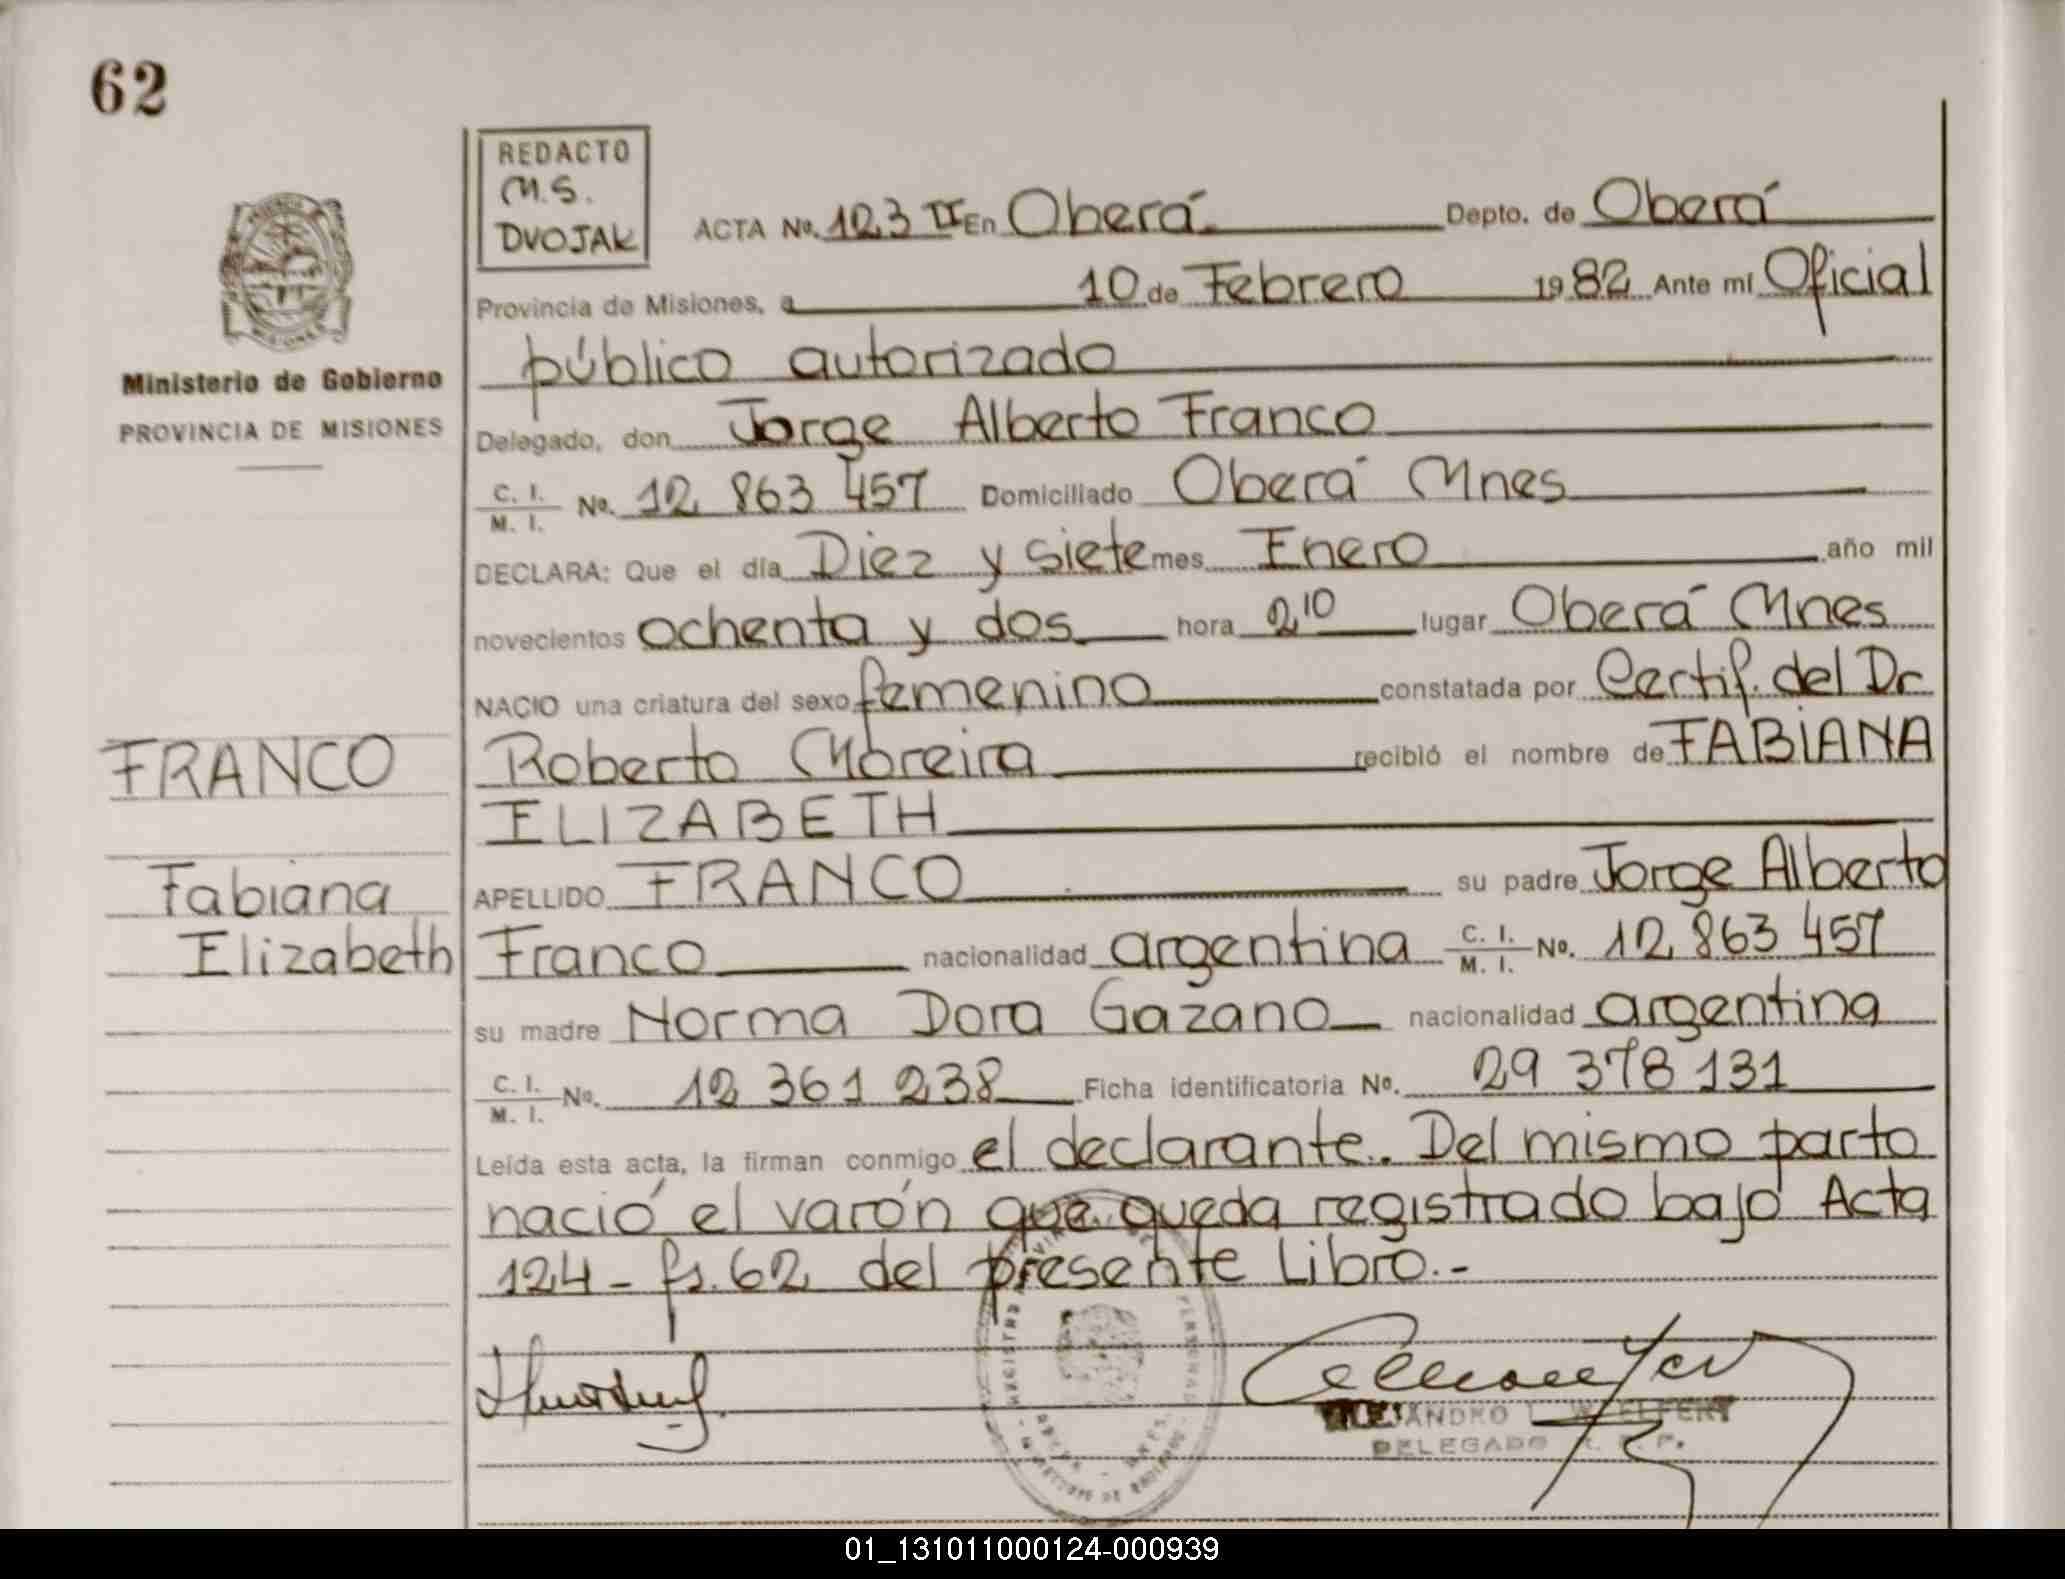 62
REDACTO
M.S.
DVOJAK
ACTA No. 123 II En Oberá Depto. de Oberá
Provincia de Misiones, a 10 de Febrero 1982 Ante mí Oficial
público autorizado
Ministerio de Gobierno
PROVINCIA DE MISIONES
Delegado, don Jorge Alberto Franco
C. I. / M. I. No. 12 863 457 Domiciliado Oberá Mnes
DECLARA: Que el día Diez y siete mes Enero año mil
novecientos ochenta y dos hora 2 10 lugar Oberá Mnes
NACIO una criatura del sexo femenino constatada por Certif. del Dr
Roberto Moreira recibió el nombre de FABIANA
ELIZABETH
FRANCO
Fabiana
Elizabeth
APELLIDO FRANCO su padre Jorge Alberto
Franco nacionalidad argentina C. I. / M. I. No. 12 863 457
su madre Norma Dora Gazano nacionalidad argentina
C. I. / M. I. No. 12 361 238 Ficha identificatoria No. 29 378 131
Leída esta acta, la firman conmigo el declarante. Del mismo parto
nació el varón que queda registrado bajo Acta
124 - fs. 62 del presente Libro.-
DELEGADO
01_131011000124-000939